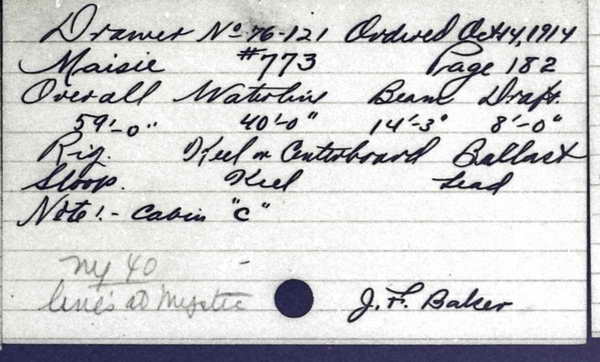 Drawer No 76-121 Ordered Oct 14, 1914
Maisie #773 Page 182
Overall Waterline Beam Draft.
59'-0" 40'-0" 14'-3" 8'-0"
Rig. Keel or Centerboard Ballast
Sloop. Keel Lead
Note:- Cabin "C"
NY 40
lines at Mystic
J. F. Baker